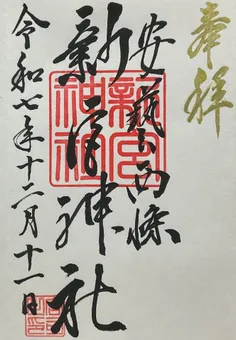 奉拝
安藝西條
新宮神社
新宮
神社
令和七年十二月十一日